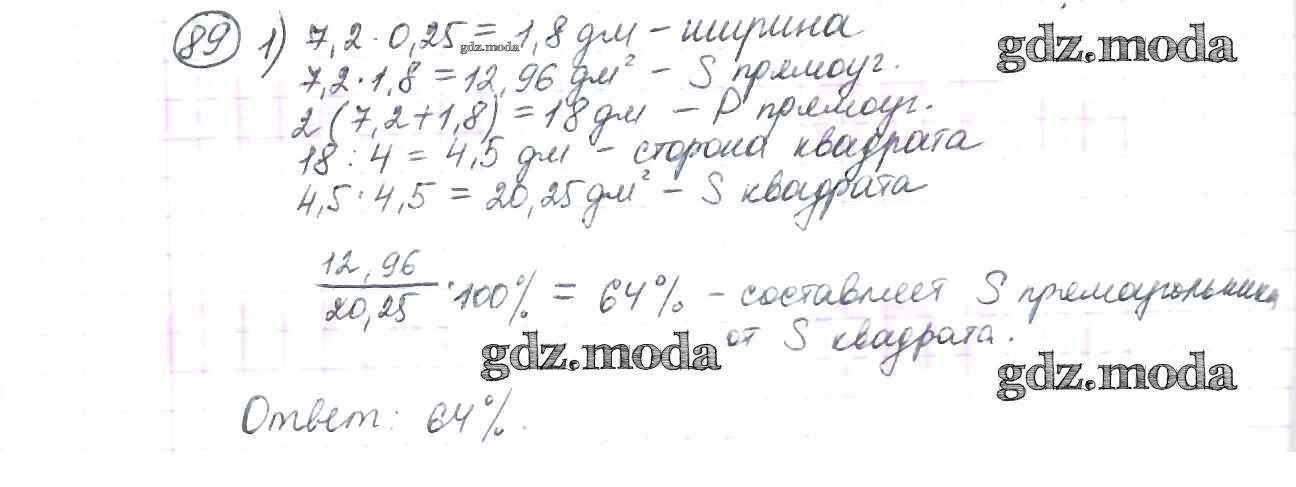 89 1) 7,2 · 0,25 = 1,8 дм – ширина
gdz.moda
gdz.moda
7,2 · 1,8 = 12,96 дм² – S прямоуг.
2 (7,2+1,8) = 18 дм – P прямоуг.
18 : 4 = 4,5 дм – сторона квадрата
4,5 · 4,5 = 20,25 дм² – S квадрата
12,96
20,25 · 100% = 64% – составляет S прямоугольника
от S квадрата.
gdz.moda
gdz.moda
Ответ: 64%.